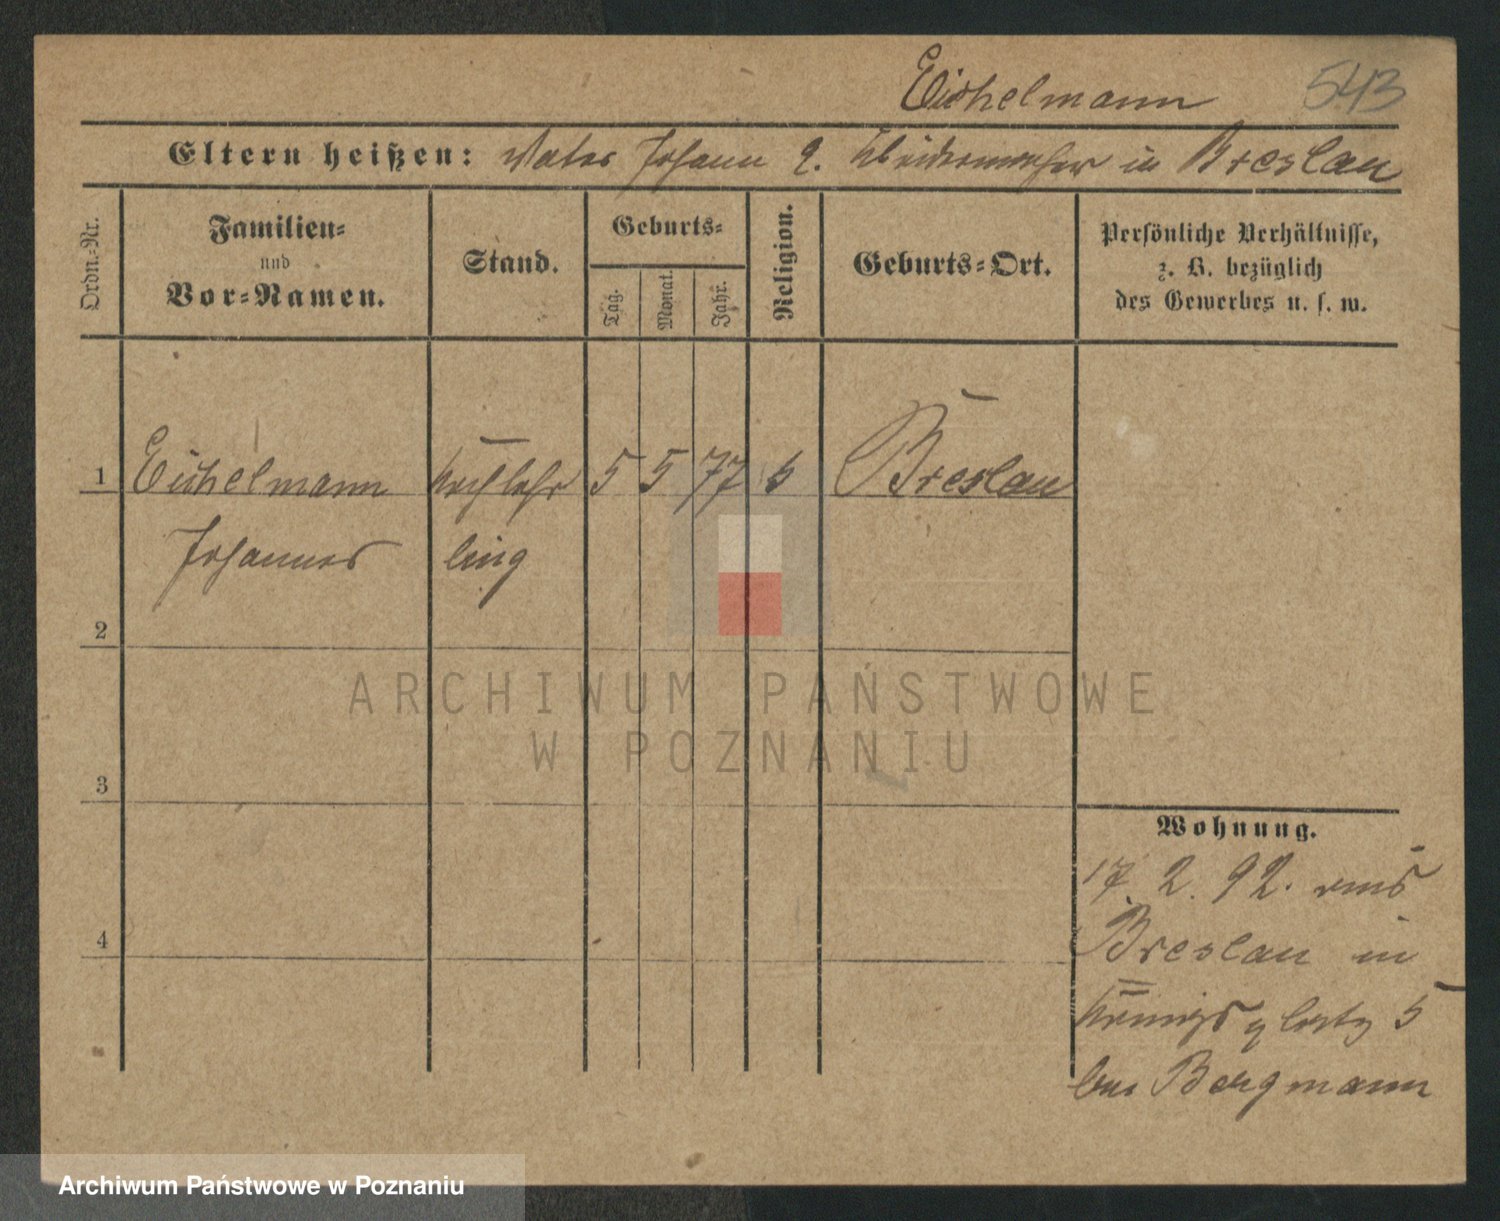 Eichelmann 543
Eltern heißen: Vater Johann E. in Breslau
Ordn.-Nr.
Familien-
und
Vor-Namen.
Stand.
Geburts-
Tag.
Monat.
Jahr.
Religion.
Geburts-Ort.
Persönliche Verhältnisse,
z. B. bezüglich
des Gewerbes u. s. w.
1 Eichelmann Kochlehr 5 5 77 Breslau
Johannes ling
2
3
4
Wohnung.
17. 2. 92. aus
Breslau in
Königsplatz 5
bei Bergmann
ARCHIWUM PAŃSTWOWE
W POZNANIU
Archiwum Państwowe w Poznaniu